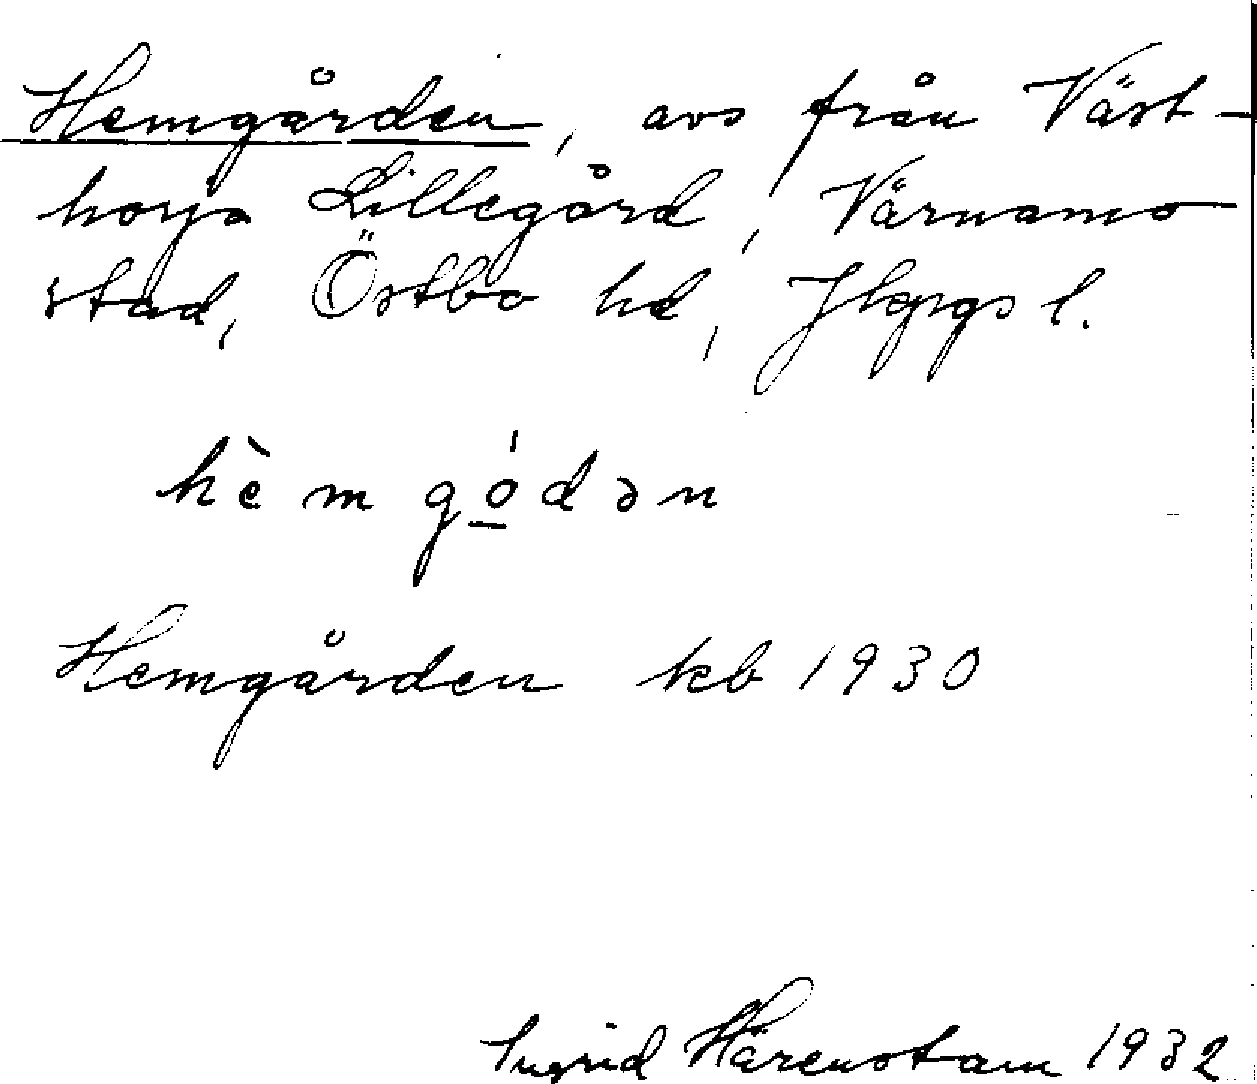 Hemgården, avs från Väst-
horja Lillegård, Värnamo
stad, Östbo hd, Jkpgs l.
hèmgó̠dən
Hemgården kb 1930
Ingrid Härenstam 1932